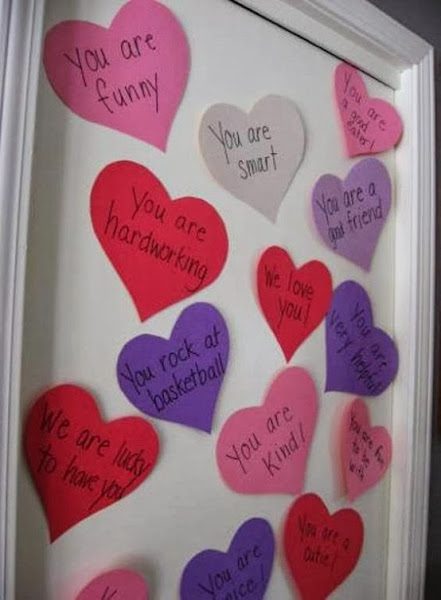 You are
funny
You are
smart
You are
a good
eater!
You are
hardworking
You are a
good friend
We love
you!
You rock at
basketball
You are
very helpful!
We are lucky
to have you
You are
kind!
You are fun
to be
with
You are a
cutie!
You are
nice!
You are